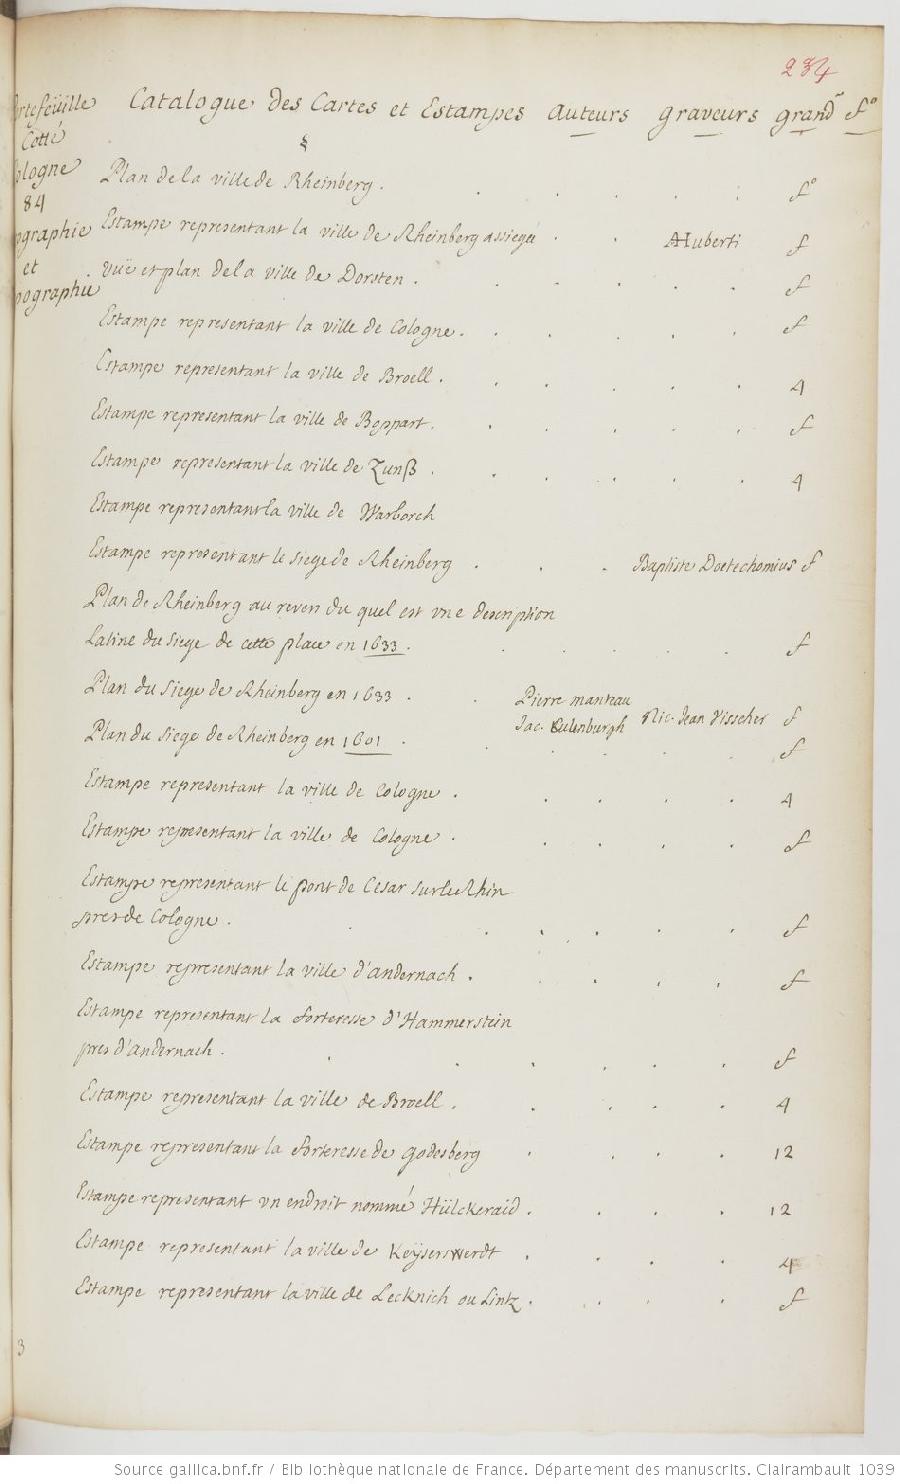 234
Catalogue des Cartes et Estampes auteurs graveurs grandr fo
Cotté
84
et
Plan de la ville de Rheinberg. fo
Estampe representant la ville de Rheinberg assiegée AHuberti f
vuë et plan de la ville de Dorsten. f
Estampe representant la ville de Cologne. f
Estampe representant la ville de Broell. 4
Estampe representant la ville de Boppart. f
Estampe representant la ville de Zunß. 4
Estampe representant la ville de Warborch
Estampe representant le siege de Rheinberg Baptiste Doetechomius f
Plan de Rheinberg au revers du quel est vne description
Latine du siege de cette place en 1633. f
Plan du siege de Rheinberg en 1633. Pierre manteau
Jac. Eulenburgh Nic. Jean Visscher f
Plan du siege de Rheinberg en 1601. f
Estampe representant la ville de Cologne. 4
Estampe representant la ville de Cologne. f
Estampe representant le pont de Cesar sur le Rhin
pres de Cologne. f
Estampe representant la ville d'andernach. f
Estampe representant la forteresse d'Hammerstein
pres d'andernach. f
Estampe representant la ville de Broell. 4
Estampe representant la forteresse de godesberg 12
Estampe representant vn endroit nommé Hülckeraid. 12
Estampe representant la ville de Keÿserswerdt 4
Estampe representant la ville de Lecknich ou Lintz. f
3
Source gallica.bnf.fr / Bibliothèque nationale de France. Département des manuscrits. Clairambault 1039